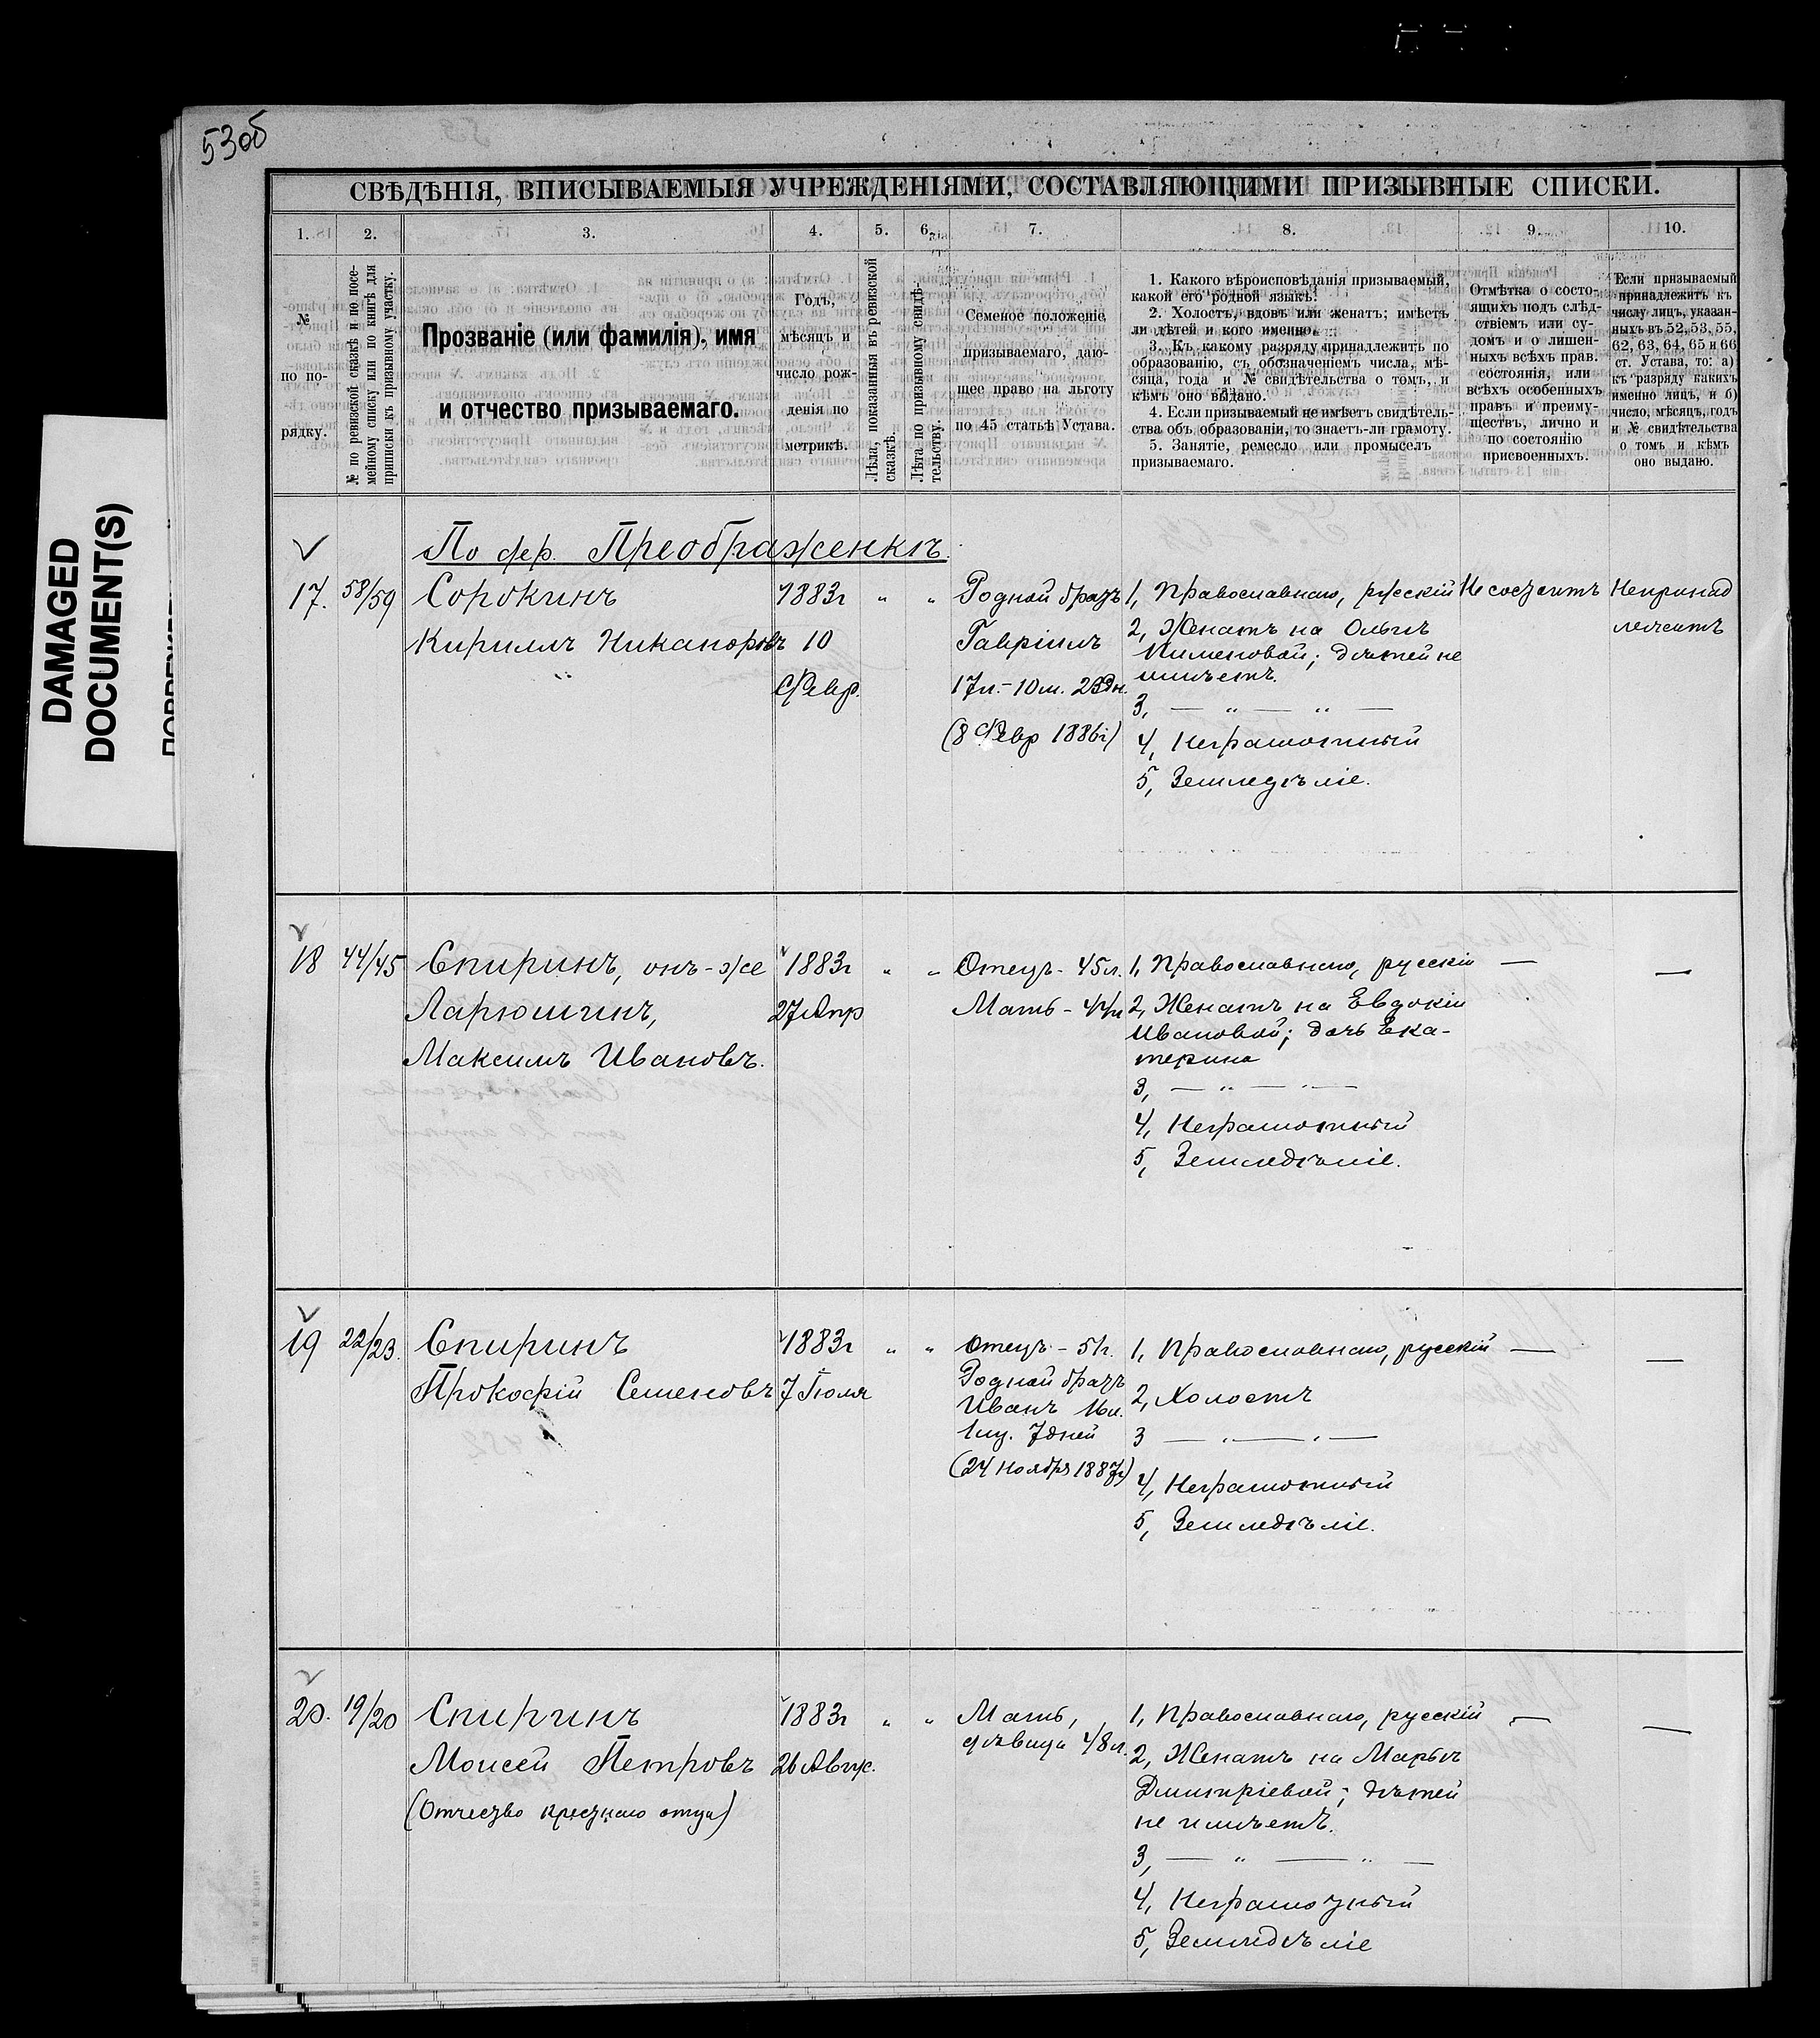 53об
DAMAGED
DOCUMENT(S)
СВѢДѢНІЯ, ВПИСЫВАЕМЫЯ УЧРЕЖДЕНІЯМИ, СОСТАВЛЯЮЩИМИ ПРИЗЫВНЫЕ СПИСКИ.
1. 2. 3. 4. 5. 6. 7. 8. 9. 10.
№
по по-
рядку.
№ по ревизской сказкѣ и по посе-
мейному списку или по книгѣ для
приписки къ призывному участку.
Прозваніе (или фамилія), имя
и отчество призываемаго.
Годъ,
мѣсяцъ и
число рож-
денія по
метрикѣ.
Лѣта, показанныя въ ревизской
сказкѣ.
Лѣта по призывному свидѣ-
тельству.
Семейное положеніе
призываемаго, даю-
щее право на льготу
по 45 статьѣ Устава.
1. Какого вѣроисповѣданія призываемый,
какой его родной языкъ.
2. Холостъ, вдовъ или женатъ; имѣетъ
ли дѣтей и кого именно.
3. Къ какому разряду принадлежитъ по
образованію, съ обозначеніемъ числа, мѣ-
сяца, года и № свидѣтельства о томъ, и
кѣмъ оно выдано.
4. Если призываемый не имѣетъ свидѣтель-
ства объ образованіи, то знаетъ-ли грамоту.
5. Занятіе, ремесло или промыселъ
призываемаго.
Отмѣтка о состо-
ящихъ подъ слѣд-
ствіемъ или су-
домъ и о лишен-
ныхъ всѣхъ прав.
состоянія, или
всѣхъ особенныхъ
правъ и преиму-
ществъ, лично и
по состоянію
присвоенныхъ.
Если призываемый
принадлежитъ къ
числу лицъ, указан-
ныхъ въ 52, 53, 55,
62, 63, 64, 65 и 66
ст. Устава, то: а)
къ разряду какихъ
именно лицъ, и б)
число, мѣсяцъ, годъ
и № свидѣтельства
о томъ и кѣмъ
оно выдано.
По дер. Преображенкѣ
17. 58/59
Сорокинъ
Кириллъ Никаноровъ
1883г
10
Февр.
" "
Родной братъ
Гавріилъ
17л.-10м. 23дн.
(8 Февр 1886г)
1, Православнаго, русскій
2, Женатъ на Ольгѣ
Пименовой; дѣтей не
имѣетъ.
3, — " — " —
4, Неграмотный
5, Земледѣліе.
Не состоитъ
Непринад
лежитъ
18 44/45
Спиринъ, онъ-же
Ларюшкинъ,
Максимъ Ивановъ.
1883г
27 Апр
" "
Отецъ - 45л.
Мать - 44л
1, Православнаго, русскій
2, Женатъ на Евдокіи
Ивановой; дочь Ека-
терина
3, — " — " —
4, Неграмотный
5, Земледѣліе.
— —
19 22/23.
Спиринъ
Прокофій Семеновъ
1883г
7 Іюля
" "
Отецъ - 51г.
Родной братъ
Иванъ 16л.
1мц. 7дней
(24 ноября 1887г)
1, Православнаго, русскій
2, Холостъ
3 — " — " —
4, Неграмотный
5, Земледѣліе.
— —
20. 19/20
Спиринъ
Моисей Петровъ
(Отчество крестнаго отца)
1883г
26 Август.
" "
Мать,
дѣвица 48л.
1, Православнаго, русскій
2, Женатъ на Марьѣ
Дмитріевой; дѣтей
не имѣетъ.
3, — " — " —
4, Неграмотный
5, Земледѣліе
— —